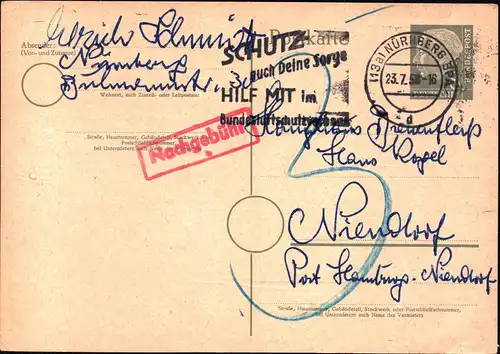 Absender:
(Vor- und Zuname)
Ulrich Schmidt
Nürnberg
Wohnort, auch Zustell- oder Leitpostamt
Straße, Hausnummer, Gebäudeteil, Stockwerk oder
Postschließfachnummer
bei Untermietern auch Name
Postkarte
SCHUTZ
auch Deine Sorge
HILF MIT im
Bundesluftschutzverband
(13a) NÜRNBERG
23.7.58-16
d
DEUTSCHE BUNDESPOST
Nachgebühr
5
Hans Kogel
Niendorf
Post Hamburg-Niendorf
Straße, Hausnummer, Gebäudeteil, Stockwerk oder Postschließfachnummer,
bei Untermietern auch Name des Vermieters